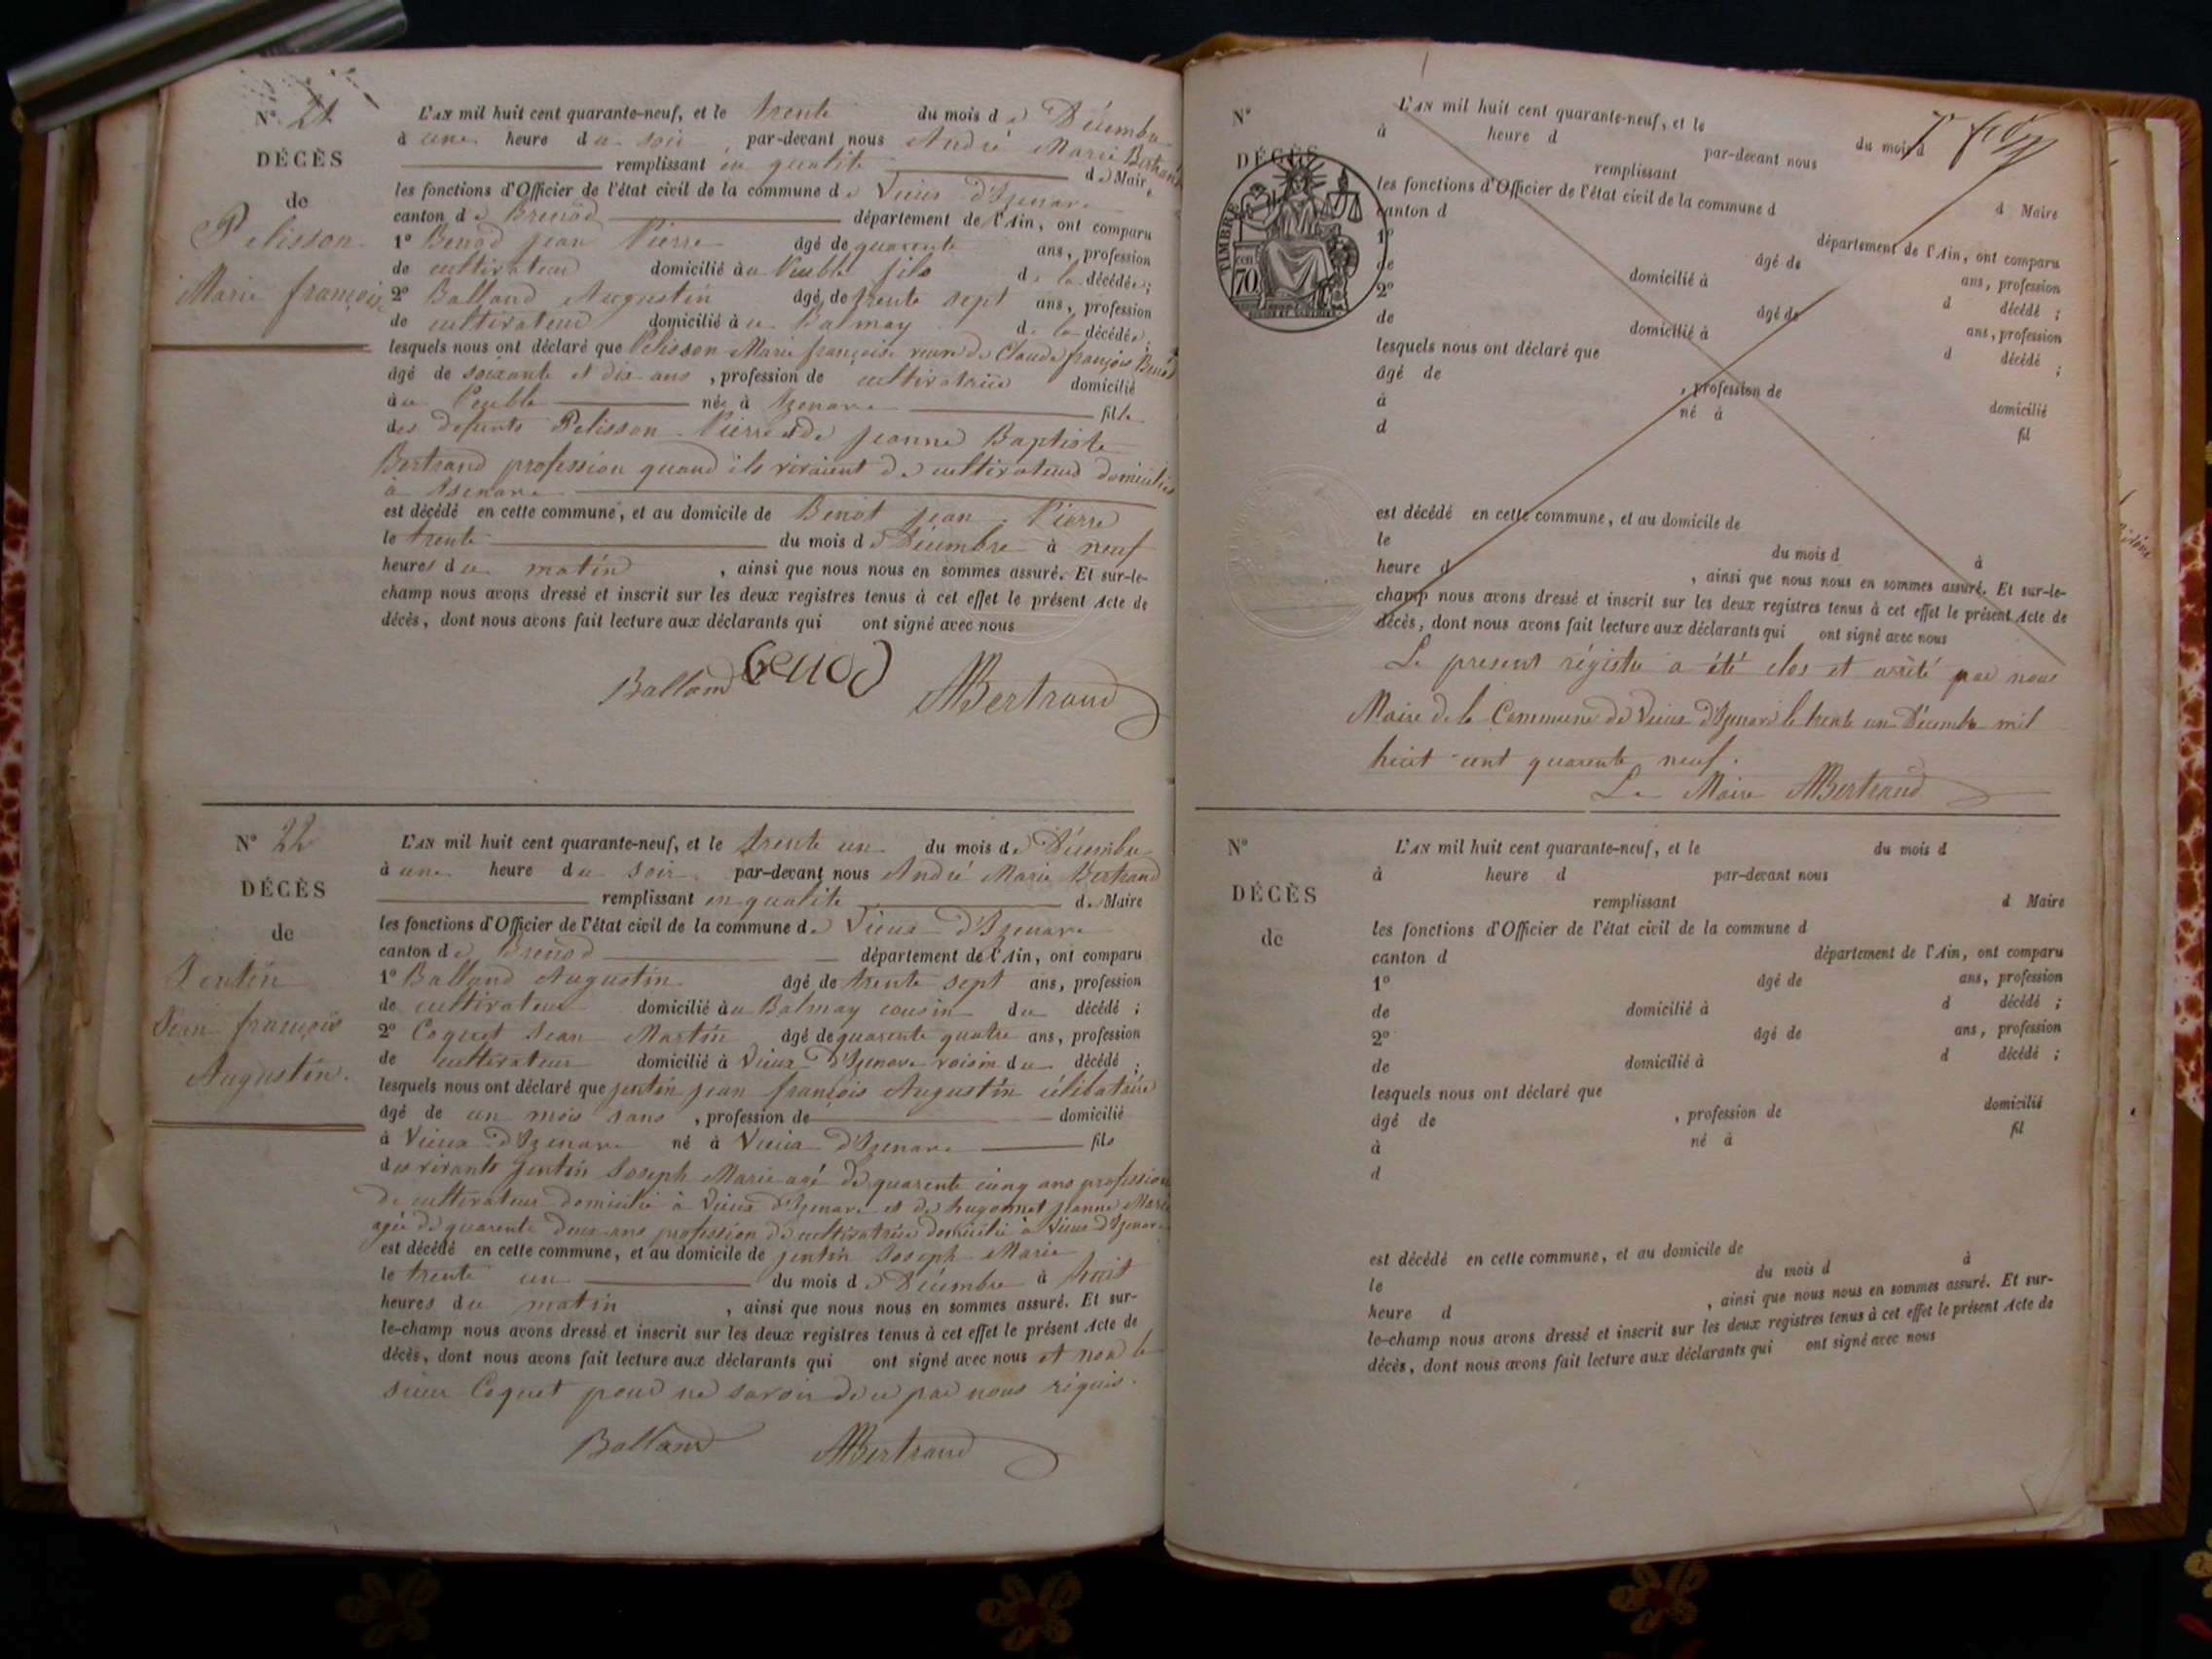 N° 21
DÉCÈS
de
Pelisson
Marie françoise
L'AN mil huit cent quarante-neuf, et le trente du mois de Décembre
à une heure du soir par-devant nous André Marie Bertrand
remplissant en qualité de Maire
les fonctions d'Officier de l'état civil de la commune de Vieux d'Izenave
canton de Brenod département de l'Ain, ont comparu
1° Benod jean Pierre âgé de quarente ans, profession
de cultivateur domicilié au Peuble fils de la décédée;
2° Balland Augustin âgé de trente sept ans, profession
de cultivateur domicilié au Balmay de la décédée;
lesquels nous ont déclaré que Pelisson Marie françoise veuve de Claude françois Benod
âgé de soixante et dix ans, profession de cultivatrice domicilié
au Peuble née à Izenave fille
des defunts Pelisson Pierre et de jeanne Baptiste
Bertrand profession quand ils vivaient de cultivateurs domiciliés
à Isenave
est décédé en cette commune, et au domicile de Benot jean Pierre
le trente du mois de Décembre à neuf
heures du matin, ainsi que nous nous en sommes assuré. Et sur-le-
champ nous avons dressé et inscrit sur les deux registres tenus à cet effet le présent Acte de
décès, dont nous avons fait lecture aux déclarants qui ont signé avec nous
Balland Benod AMBertrand
N° 22
DÉCÈS
de
Jentin
Jean françois
Augustin.
L'AN mil huit cent quarante-neuf, et le trente un du mois de Décembre
à une heure du soir par-devant nous André Marie Bertrand
remplissant en qualité de Maire
les fonctions d'Officier de l'état civil de la commune de Vieux d'Izenave
canton de Brenod département de l'Ain, ont comparu
1° Balland Augustin âgé de trente sept ans, profession
de cultivateur domicilié au Balmay cousin du décédé;
2° Coquet Jean Martin âgé de quarente quatre ans, profession
de cultivateur domicilié à Vieux d'Izenave voisin du décédé;
lesquels nous ont déclaré que jentin jean françois Augustin célibataire
âgé de un mois sans, profession de domicilié
à Vieux d'Izenave né à Vieux d'Izenave fils
des vivants jentin Joseph Marie agé de quarente cinq ans profession
de cultivateur domicilié à Vieux d'Izenave et de hugonnet jeanne Marie
agée de quarente deux ans profession de cultivatrice domicilié à Vieux d'Izenave
est décédé en cette commune, et au domicile de jentin Joseph Marie
le trente un du mois de Décembre à huit
heures du matin, ainsi que nous nous en sommes assuré. Et sur-
le-champ nous avons dressé et inscrit sur les deux registres tenus à cet effet le présent Acte de
décès, dont nous avons fait lecture aux déclarants qui ont signé avec nous et non le
sieur Coquet pour ne savoir de ce par nous réquis.
Balland AMBertrand
N°
DÉCÈS
TIMBRE
70 cen
L'AN mil huit cent quarante-neuf, et le du mois d
à heure d par-devant nous
remplissant d Maire
les fonctions d'Officier de l'état civil de la commune d
canton d département de l'Ain, ont comparu
1° âgé de ans, profession
de domicilié à d décédé;
2° âgé de ans, profession
de domicilié à d décédé;
lesquels nous ont déclaré que
âgé de, profession de domicilié
à né à fil
d
est décédé en cette commune, et au domicile de
le du mois d à
heure d, ainsi que nous nous en sommes assuré. Et sur-le-
champ nous avons dressé et inscrit sur les deux registres tenus à cet effet le présent Acte de
décès, dont nous avons fait lecture aux déclarants qui ont signé avec nous
Le present régistre a été clos et arrêté par nous
Maire de la Commune de Vieux d'Izenave le trente un Décembre mil
huit cent quarente neuf.
Le Maire AMBertrand
N°
DÉCÈS
de
L'AN mil huit cent quarante-neuf, et le du mois d
à heure d par-devant nous
remplissant d Maire
les fonctions d'Officier de l'état civil de la commune d
canton d département de l'Ain, ont comparu
1° âgé de ans, profession
de domicilié à d décédé;
2° âgé de ans, profession
de domicilié à d décédé;
lesquels nous ont déclaré que
âgé de, profession de domicilié
à né à fil
d
est décédé en cette commune, et au domicile de
le du mois d à
heure d, ainsi que nous nous en sommes assuré. Et sur-
le-champ nous avons dressé et inscrit sur les deux registres tenus à cet effet le présent Acte de
décès, dont nous avons fait lecture aux déclarants qui ont signé avec nous